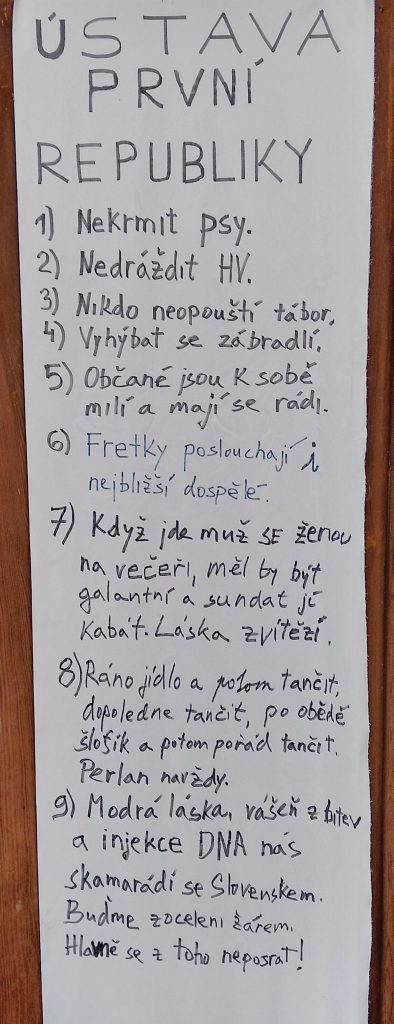 ÚSTAVA
PRVNÍ
REPUBLIKY
1) Nekrmit psy.
2) Nedráždit HV.
3) Nikdo neopouští tábor.
4) Vyhýbat se zábradlí.
5) Občané jsou k sobě
milí a mají se rádi.
6) Fretky poslouchají i
nejbližší dospělé.
7) Když jde muž SE ženou
na večeři, měl by být
galantní a sundat jí
kabát. Láska zvítězí.
8) Ráno jídlo a potom tančit,
dopoledne tančit, po obědě
šlofík a potom pořád tančit.
Perlan navždy.
9) Modrá láska, vášeň z bitev
a injekce DNA nás
skamarádí se Slovenskem.
Buďme zoceleni žárem.
Hlavně se z toho neposrat!